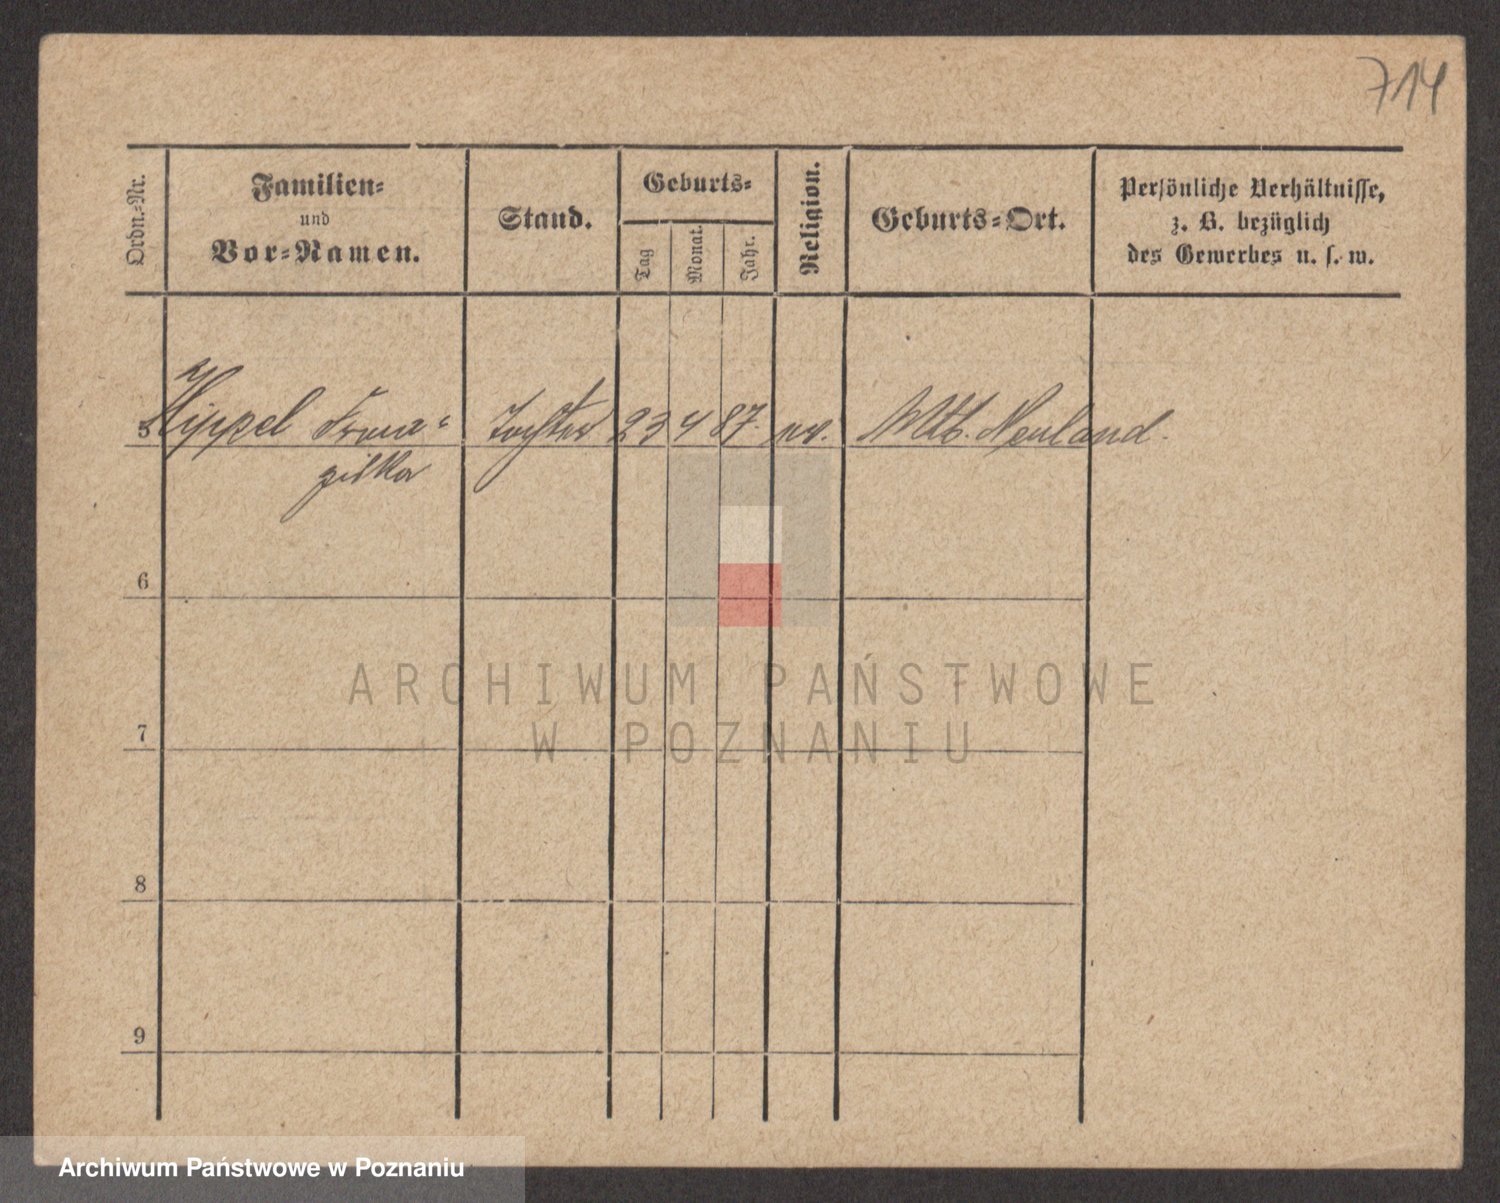 714
Ordn.-Nr.
Familien-
und
Vor-Namen.
Stand.
Geburts-
Tag
Monat.
Jahr.
Religion.
Geburts-Ort.
Persönliche Verhältnisse,
z. B. bezüglich
des Gewerbes u. s. w.
5 Hippel Fran- Tochter 23 4 87. ev. Neuland.
ziska
6
7
8
9
ARCHIWUM PAŃSTWOWE
W POZNANIU
Archiwum Państwowe w Poznaniu